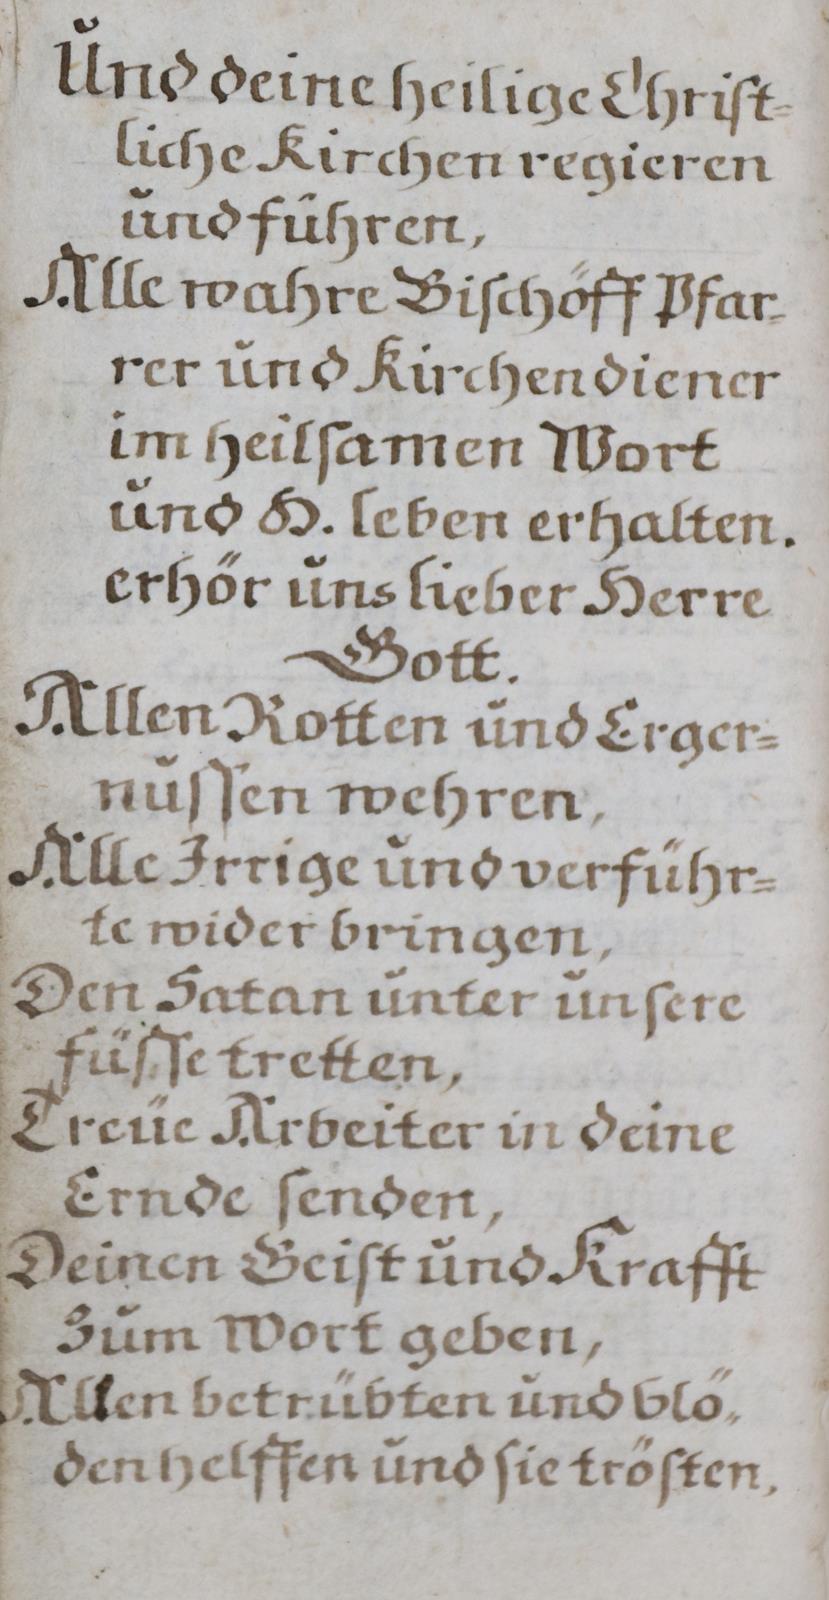 Und deine heilige Christ=
liche Kirchen regieren
und führen,
Alle wahre Bischöff Pfar=
rer und Kirchendiener
im heilsamen Wort
und H. leben erhalten.
erhör uns lieber Herre
Gott.
Allen Rotten und Erger=
nussen wehren,
Alle Irrige und verführ=
te wider bringen,
Den Satan unter unsere
füsse tretten,
Treüe Arbeiter in deine
Ernde senden,
Deinen Geist und Krafft
Zum Wort geben,
Allen betrübten und blö=
den helffen und sie trösten,